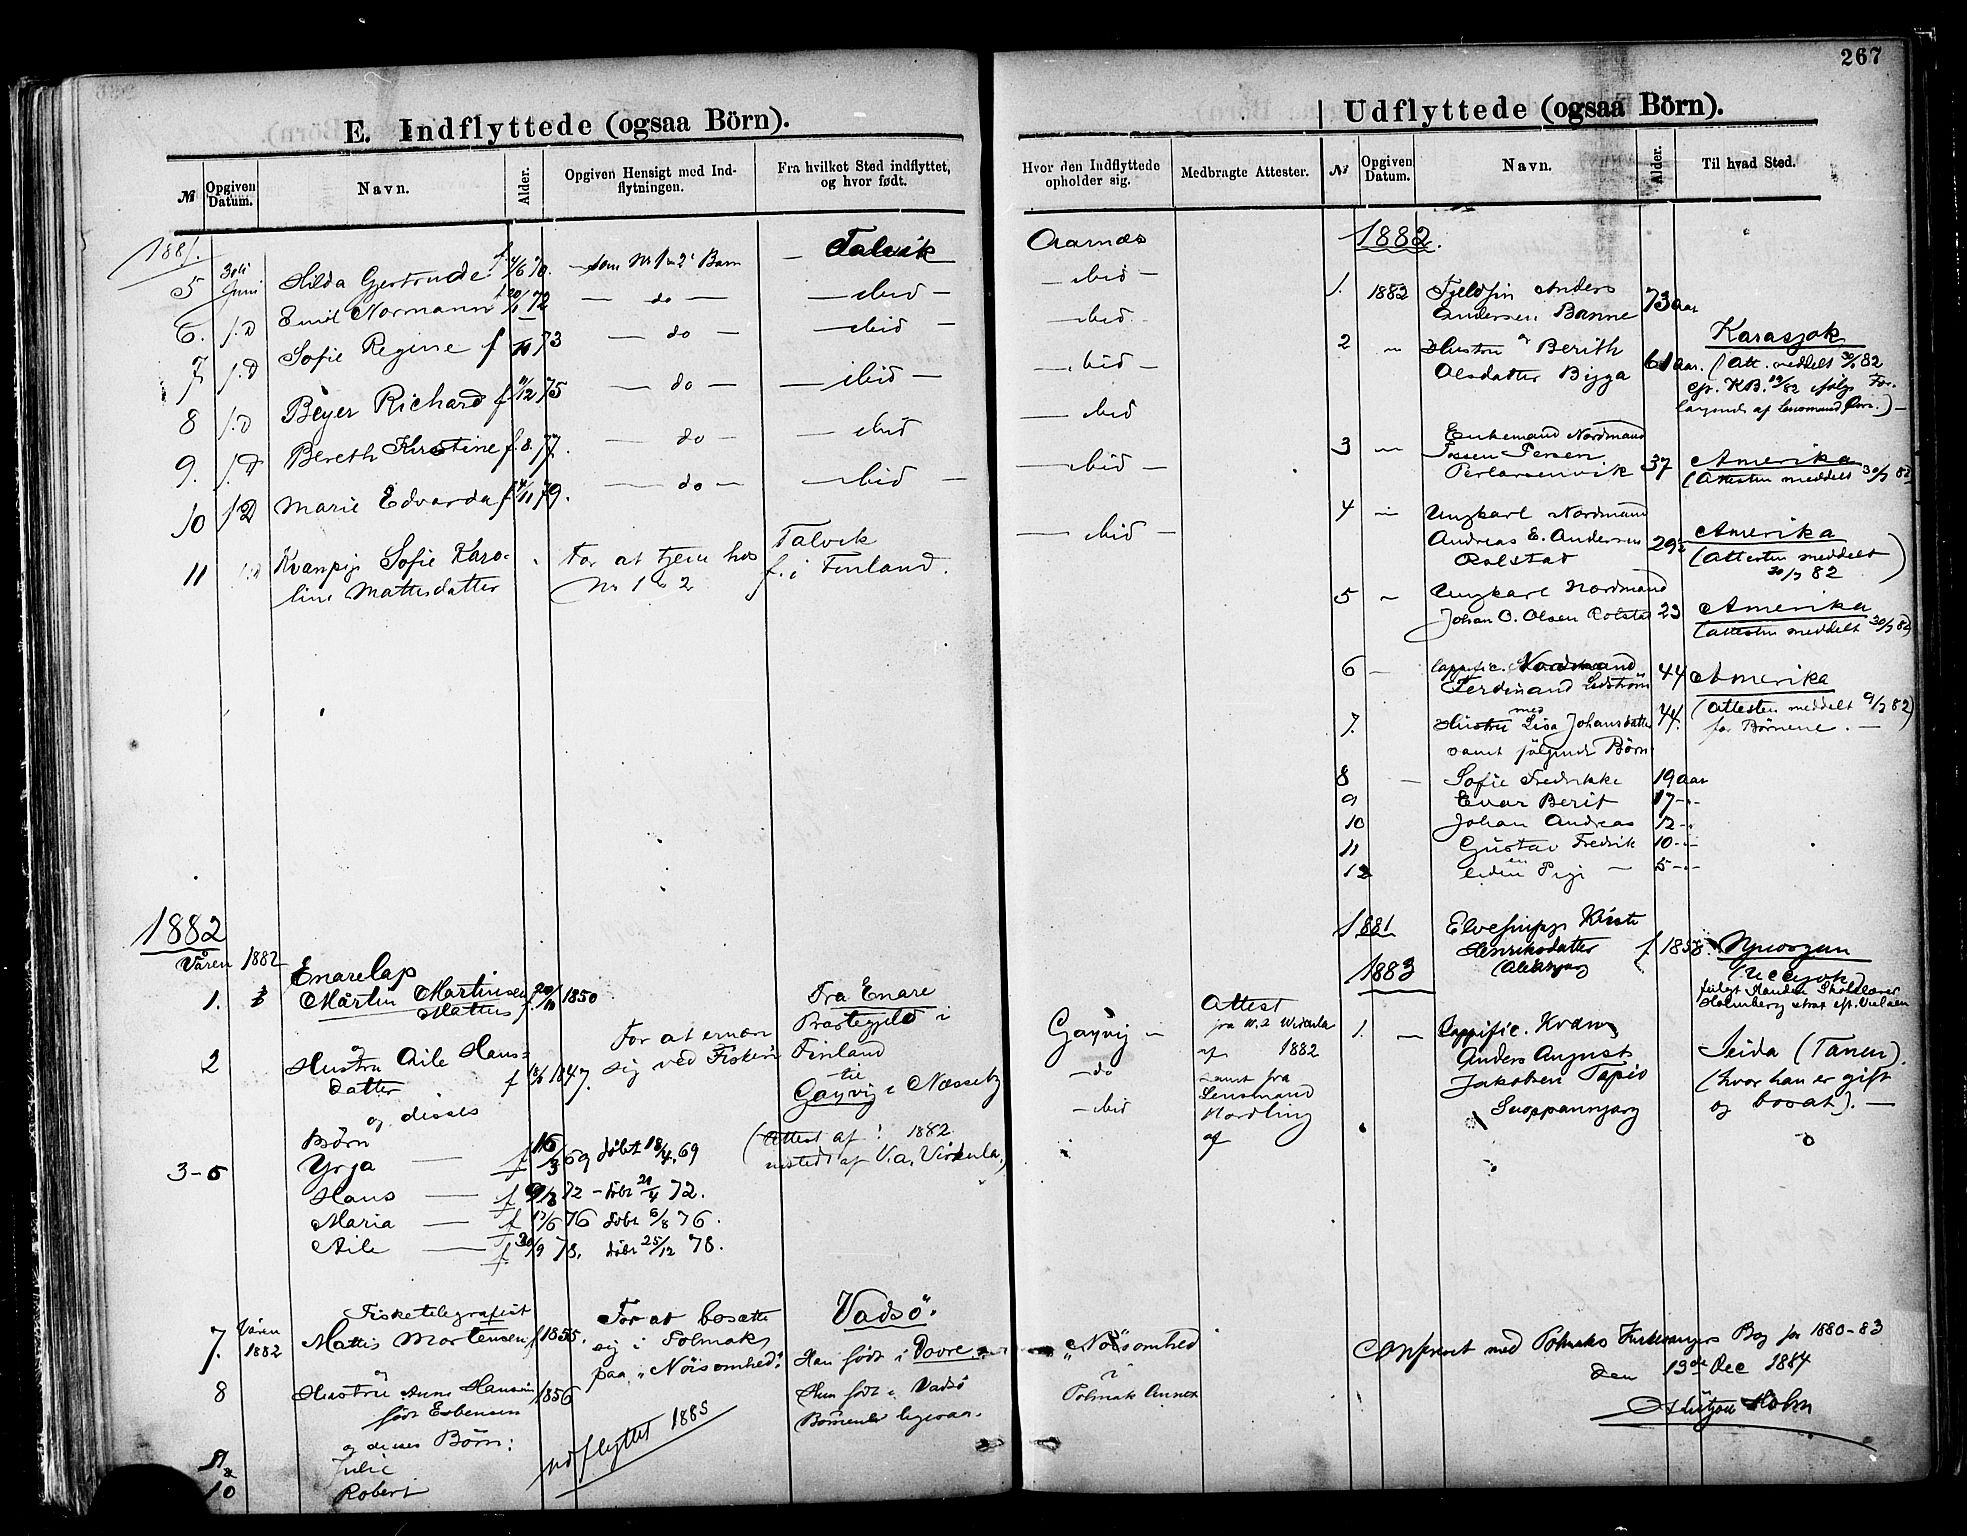 267
E. Indflyttede (ogsaa Börn).
№ Opgiven Datum. Navn. Alder. Opgiven Hensigt med Indflytningen. Fra hvilket Sted indflyttet, og hvor født. Hvor den Indflyttede opholder sig. Medbragte Attester.
1881.
5 Juni Hilda Gertrude f 4/6 70. som Nr 1 & 2's Barn Talvik Aarnæs
6. Emil Normann f 20/1 72 — do — — ibid — — ibid —
7 Sofie Regine f 73 — do — — ibid — — ibid.
8 Beyer Richard f 75 — do — — ibid — — ibid —
9. Bereth Kirstine f. 8. 77. — do — — ibid — ibid
10 Marie Edvarda f 4/11 79. — do — — ibid — — ibid —
11 Kvænpige Sofie Karo-
line Mattesdatter
For at tjene hos
Nr 1 & 2
Talvik
f. i Finland.
— ibid —
1882
Våren 1882
Enarelap
1. Mårtin Martinsen f. 1850
Mattus
og
2 Hustru Aile Hans-
datter f 1847.
og disses
Børn
3-6 Yrja — f 15/3 69 døbt 18/4 69
Hans — f 9/3 72 - døbt 21/4 72.
Maria — f 17/6 76 døbt 6/8 76.
Aile — f 30/9 78. døbt 25/12 78.
For at ernære
sig ved Fiskeri
Fra Enare
Præstegjeld i
Finland
til
Gayvig i Næsseby
(Attest af 1882
af V.a. Virkula.)
Gayvig —
— do
— ibid
Attest
1882
samt fra
Lensmand
Nordling
af
7. Våren 1882
Fisketelegrafist
Mattis Mortensen f 1855.
og
8 Hustru Anne Hansine 1856
født Esbensen
og disses Børn:
9 Julie
10 Robert
For at bosætte
sig i Polmak
paa „Nöisomhed“
udflyttet 1885
Vadsö.
Han født i Dovre
Hun født i Vadsö
Børnene ligesaa.
„Nöisomhed
i
Polmak Annex
Udflyttede (ogsaa Börn).
№ Opgiven Datum. Navn. Alder. Til hvad Sted.
1882.
1. 1882 Fjeldfin Anders
Andersen Banne 73 aar
2 — Hustru Berith
Olsdatter Bigga 61 aar.
Karasjok
(Att. meddelt 30/3 82
3 — Enkemand Nordmand
Persen
Perlarsenvik 37
Amerika
(Attesten meddelt 30/3 82)
4 — Ungkarl Nordmand
Andreas E. Andersen 29½
Rolstad
Amerika
(Attesten meddelt
30/3 82)
5 — Ungkarl Nordmand
Johan O. Olsen Rolstad 23
Amerika
(Attesten meddelt 30/3 82)
6 — Nordmand
Ferdinand Lidström 44
Amerika
(Attesten meddelt 9/3 82)
for Børnene. —
7. med
Hustru Lisa Johansdatter 44.
samt følgende Børn
8 — Sofie Fredrikke 19 aar
9 Evar Berit 17 -"-
10 Johan Andreas 12 -"
11 Gustav Fredrik 10 -"-
12 en
liden Pige — 5 -"-
1881 Elvefinpige Kirste
Henriksdatter f 1858.
1883
1. — Lappific. Kvæn
Anders August
Jakobsen Tapio
Suoppannjarg
Seida (Tanen).
(hvor han er gift
og bosat). —
Confereret med Polmaks Kirkesangers Bog for 1880-83
den 13de Dec 1884